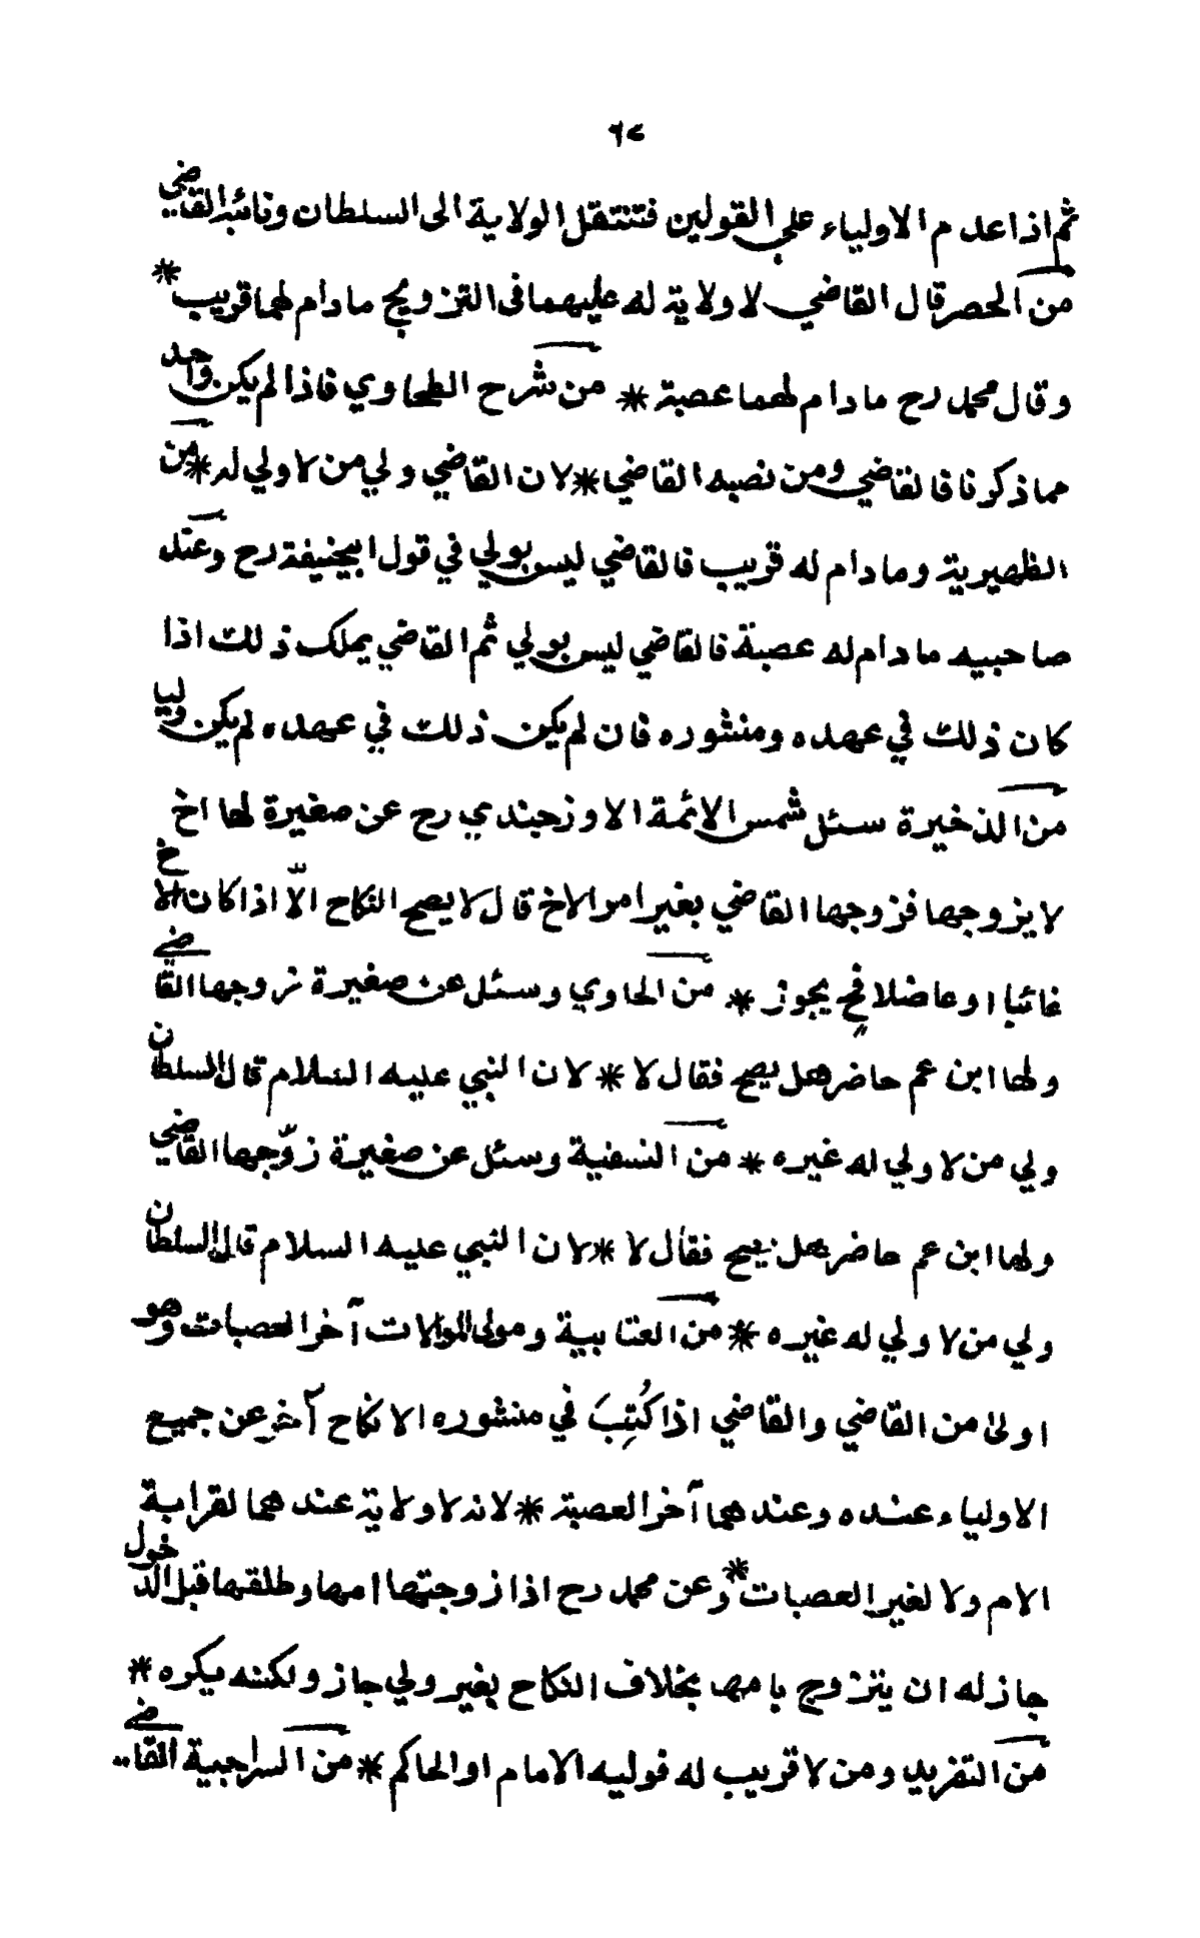 ٦٢
ثم اذا عدم الاولياء علي القولين فتنتقل الولاية الى السلطان ونائبه القاضي
من الحصر قال القاضي لا ولاية له عليهما فى التزويج ما دام لهما قريب *
وقال محمد رح ما دام لهما عصبة * من شرح الطحاوي فاذا لم يكن واحد
مما ذكرنا فالقاضي ومن نصبه القاضي * لان القاضي ولي من لا ولي له * من
الظهيرية وما دام له قريب فالقاضي ليس بولي في قول ابيحنيفة رح وعند
صاحبيه ما دام له عصبة فالقاضي ليس بولي ثم القاضي يملك ذلك اذا
كان ذلك في عهده ومنشوره فان لم يكن ذلك في عهده لم يكن وليا
من الذخيرة سئل شمس الائمة الاوزجندي رح عن صغيرة لها اخ
لا يزوجها فزوجها القاضي بغير امر الاخ قال لا يصح النكاح الّا اذا كان الاخ
غائبا او عاضلا فح يجوز * من الحاوي وسئل عن صغيرة زوجها القاضي
ولها ابن عم حاضر هل يصح فقال لا * لان النبي عليه السلام قال السلطان
ولي من لا ولي له غيره * من النسفية وسئل عن صغيرة زوّجها القاضي
ولها ابن عم حاضر هل يصح فقال لا * لان النبي عليه السلام قال السلطان
ولي من لا ولي له غيره * من العتابية ومولى الموالات آخر العصبات وهو
اولى من القاضي والقاضي اذا كُتِبَ في منشوره الانكاح آخر عن جميع
الاولياء عنده وعندهما آخر العصبة * لانه لا ولاية عندهما لقرابة
الام ولا لغير العصبات * وعن محمد رح اذا زوجتها امها وطلقها قبل الدخول
جاز له ان يتزوج بامها بخلاف النكاح بغير ولي جاز ولكنه يكره *
من التفريد ومن لا قريب له فوليه الامام او الحاكم * من السراجية القاضي